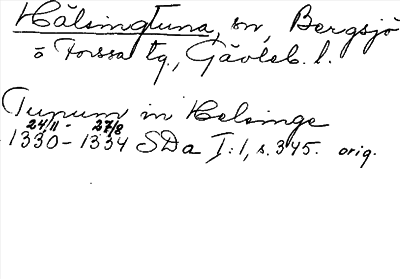 Hälsingtuna, sn, Bergsjö
o Forssa tg., Gävleb. l.
Tunum in Helsinge
24/11 - 27/8
1330-1334 SDa I:1, s. 345. orig.